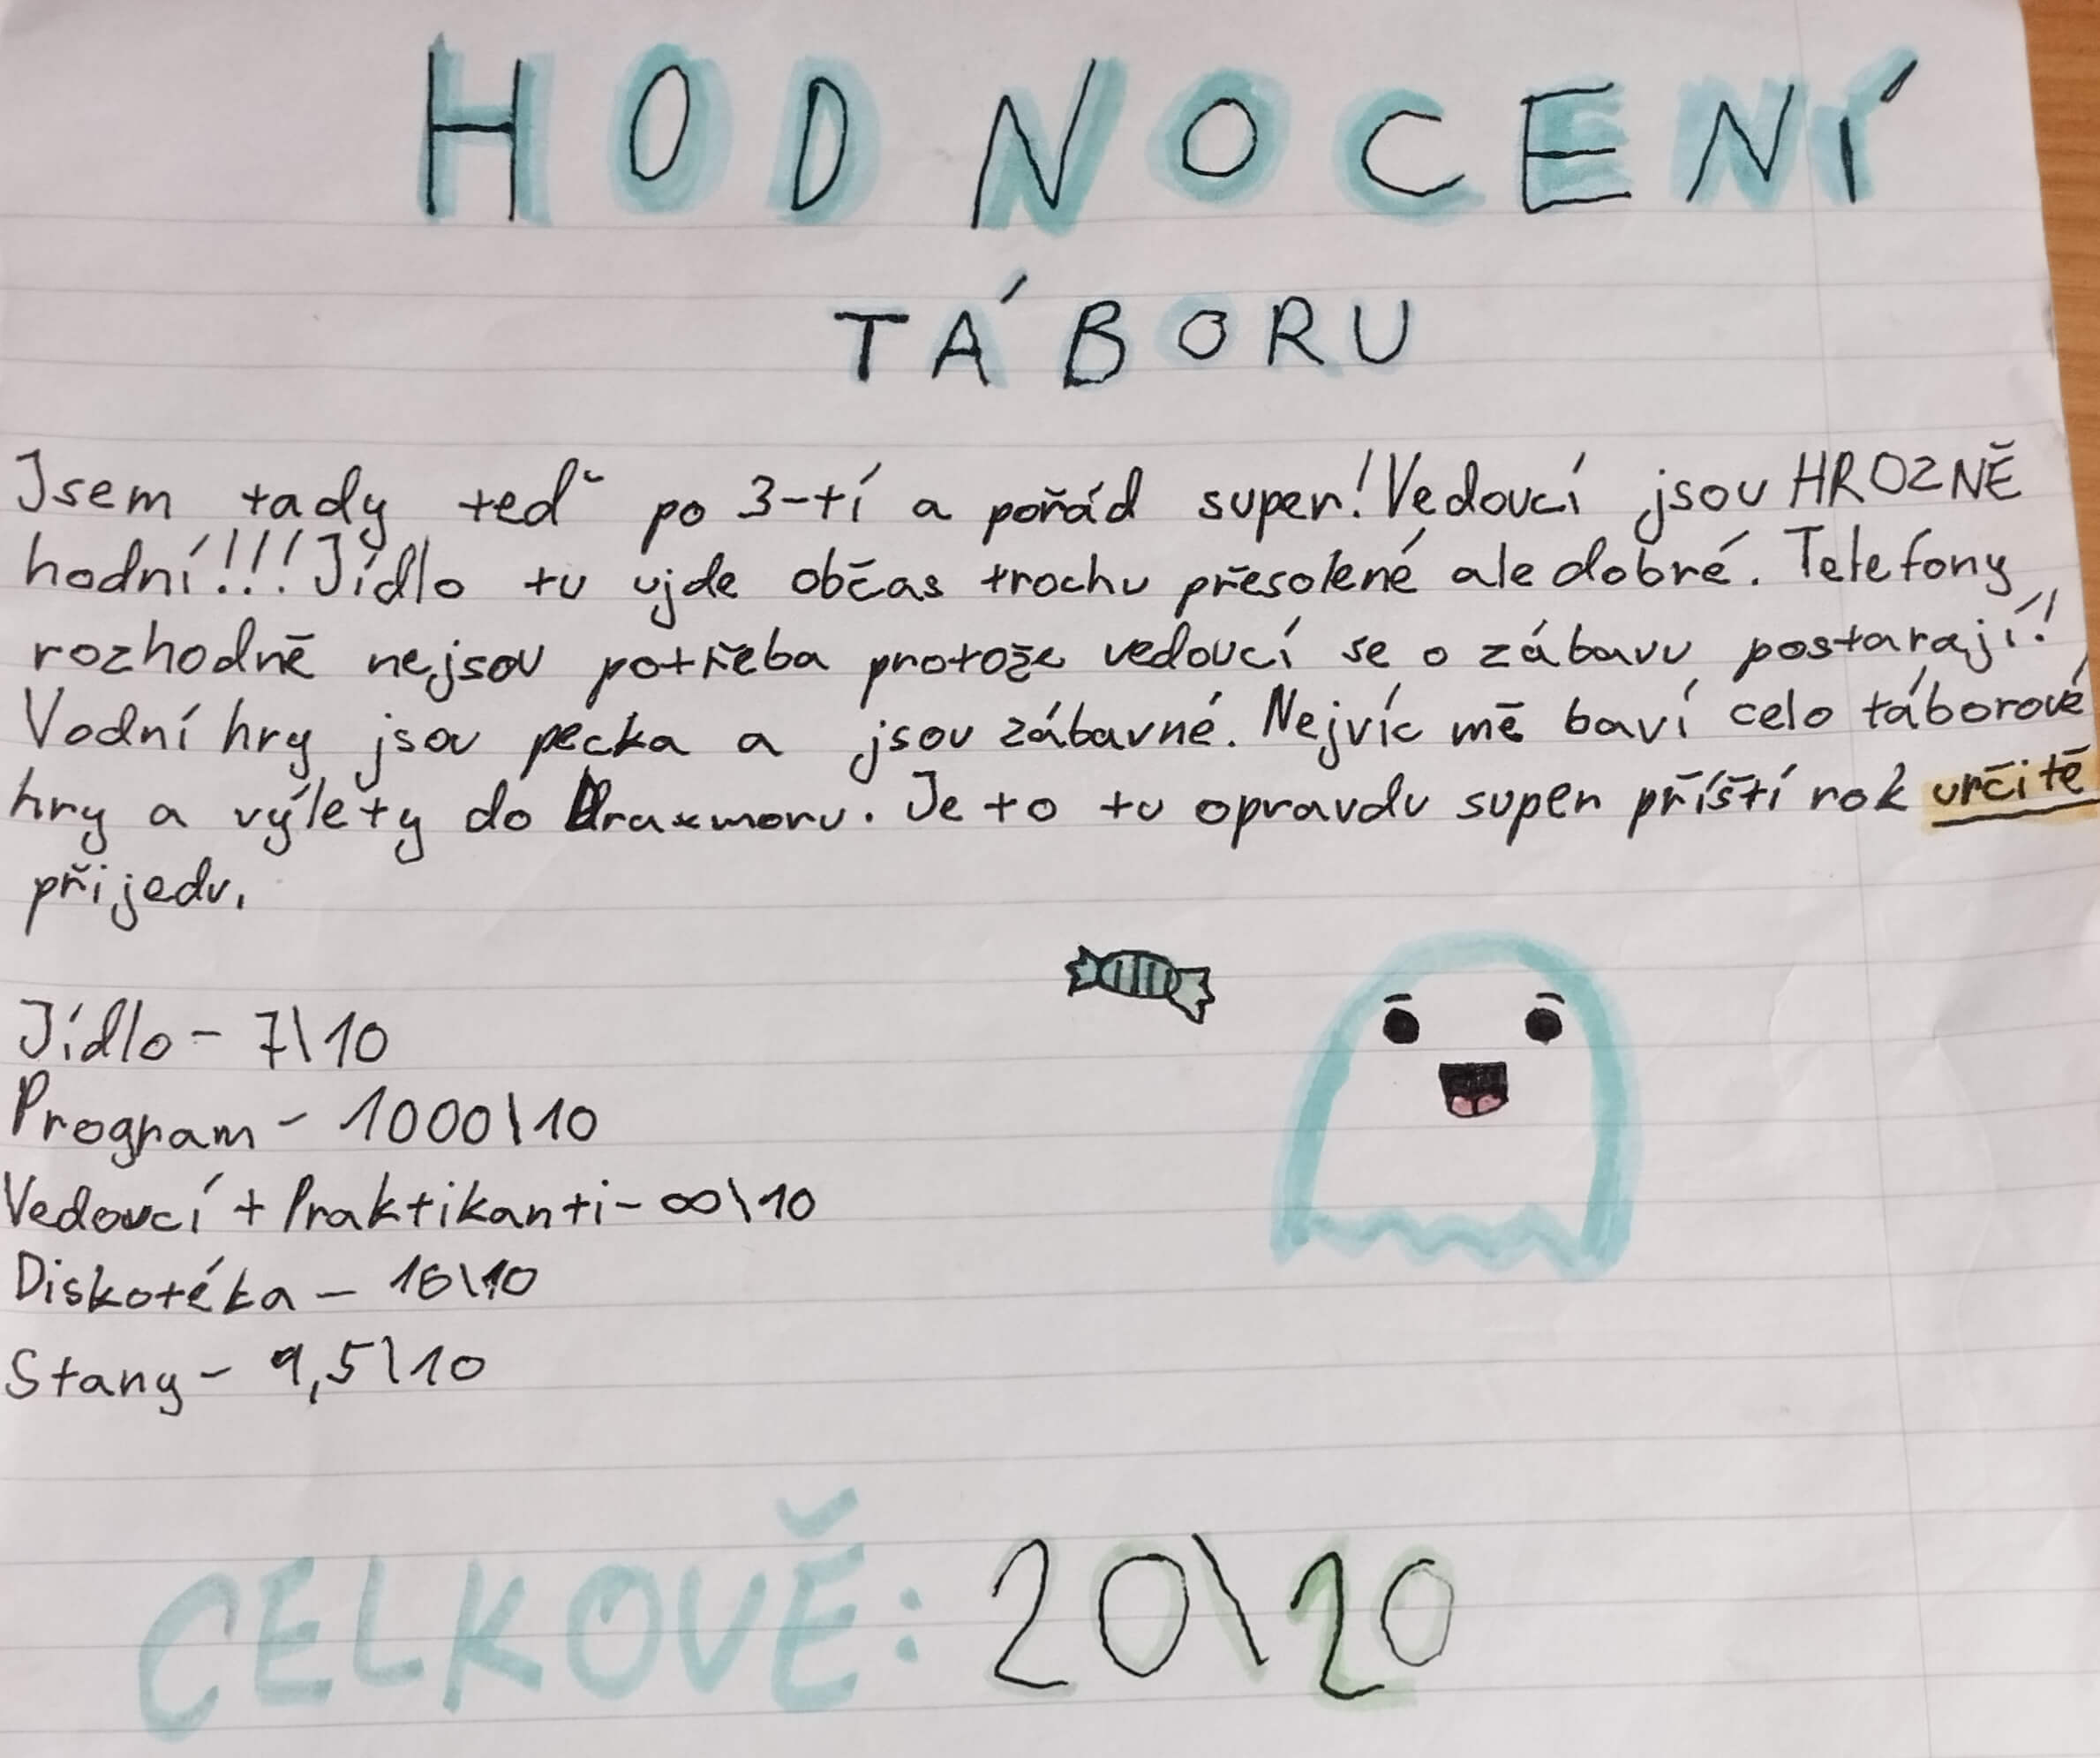 HODNOCENÍ
TÁBORU
Jsem tady teď po 3-tí a pořád super! Vedoucí jsou HROZNĚ
hodní!!! Jídlo tu ujde občas trochu přesolené ale dobré. Telefony
rozhodně nejsou potřeba protože vedoucí se o zábavu postarají!!
Vodní hry jsou pecka a jsou zábavné. Nejvíc mě baví celo táborové
hry a výlety do Draxmoru. Je to tu opravdu super příští rok určitě
přijedu.
Jídlo - 7\10
Program - 1000\10
Vedoucí + Praktikanti - ∞\10
Diskotéka - 10\10
Stany - 9,5\10
CELKOVĚ: 20\20